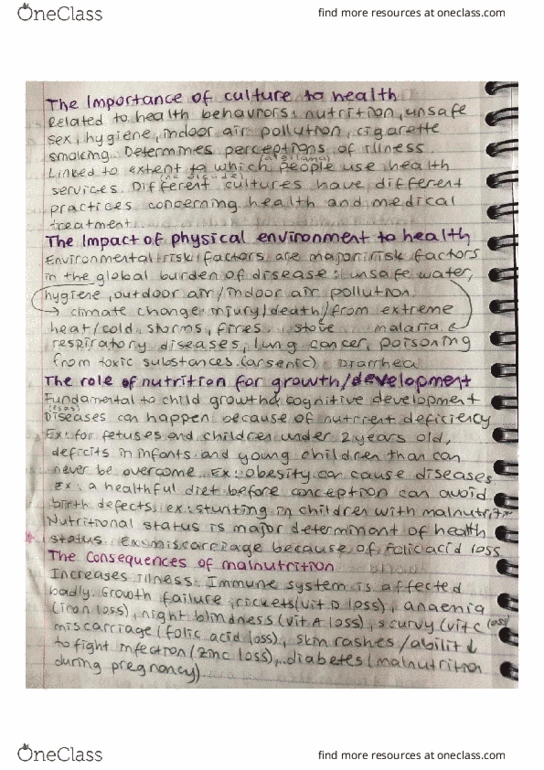 OneClass
find more resources at oneclass.com
The Importance of culture to health
Related to health behaviors: nutrition, unsafe
sex, hygiene, indoor air pollution, cigarette
smoking. Determines perceptions of illness
Linked to extent to which people use health
services. Different cultures have different
practices concerning health and medical
treatment
The Impact of physical environment to health
Environmental risk factors are major risk factors
in the global burden of disease: unsafe water,
hygiene, outdoor air/indoor air pollution
→ climate change: injury/death/from extreme
heat/cold, storms, fires. stove malaria &
respiratory diseases, lung cancer, poisoning
from toxic substances. (arsenic) Diarrhea
The role of nutrition for growth/development
Fundamental to child growth & cognitive development
Diseases can happen because of nutrient deficiency
Ex: for fetuses and children under 2 years old,
deficits in infants and young children than can
never be overcome. Ex: obesity can cause diseases
Ex: a healthful diet before conception can avoid
birth defects. ex: stunting in children with malnutrit
Nutritional status is major determinant of health
status. Ex: miscarriage because of folic acid loss
The Consequences of malnutrition
Increases illness. Immune system is affected
badly. Growth failure, rickets (vit D loss), anaemia
(iron loss), night blindness (vit A loss), scurvy (vit C loss)
miscarriage (folic acid loss), skin rashes/abilit ↓
to fight infection (zinc loss), diabetes (malnutrition
during pregnancy)
OneClass
find more resources at oneclass.com